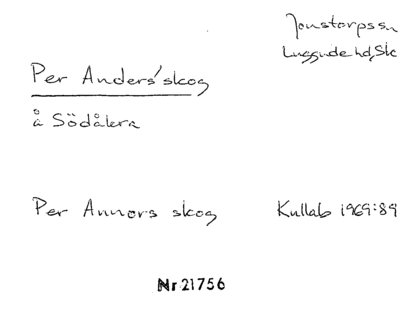 Jonstorps sn
Luggude hd, Sk
Per Anders' skog
å Södåkra
Per Annors skog
Kullab 1969:89
Nr 21756